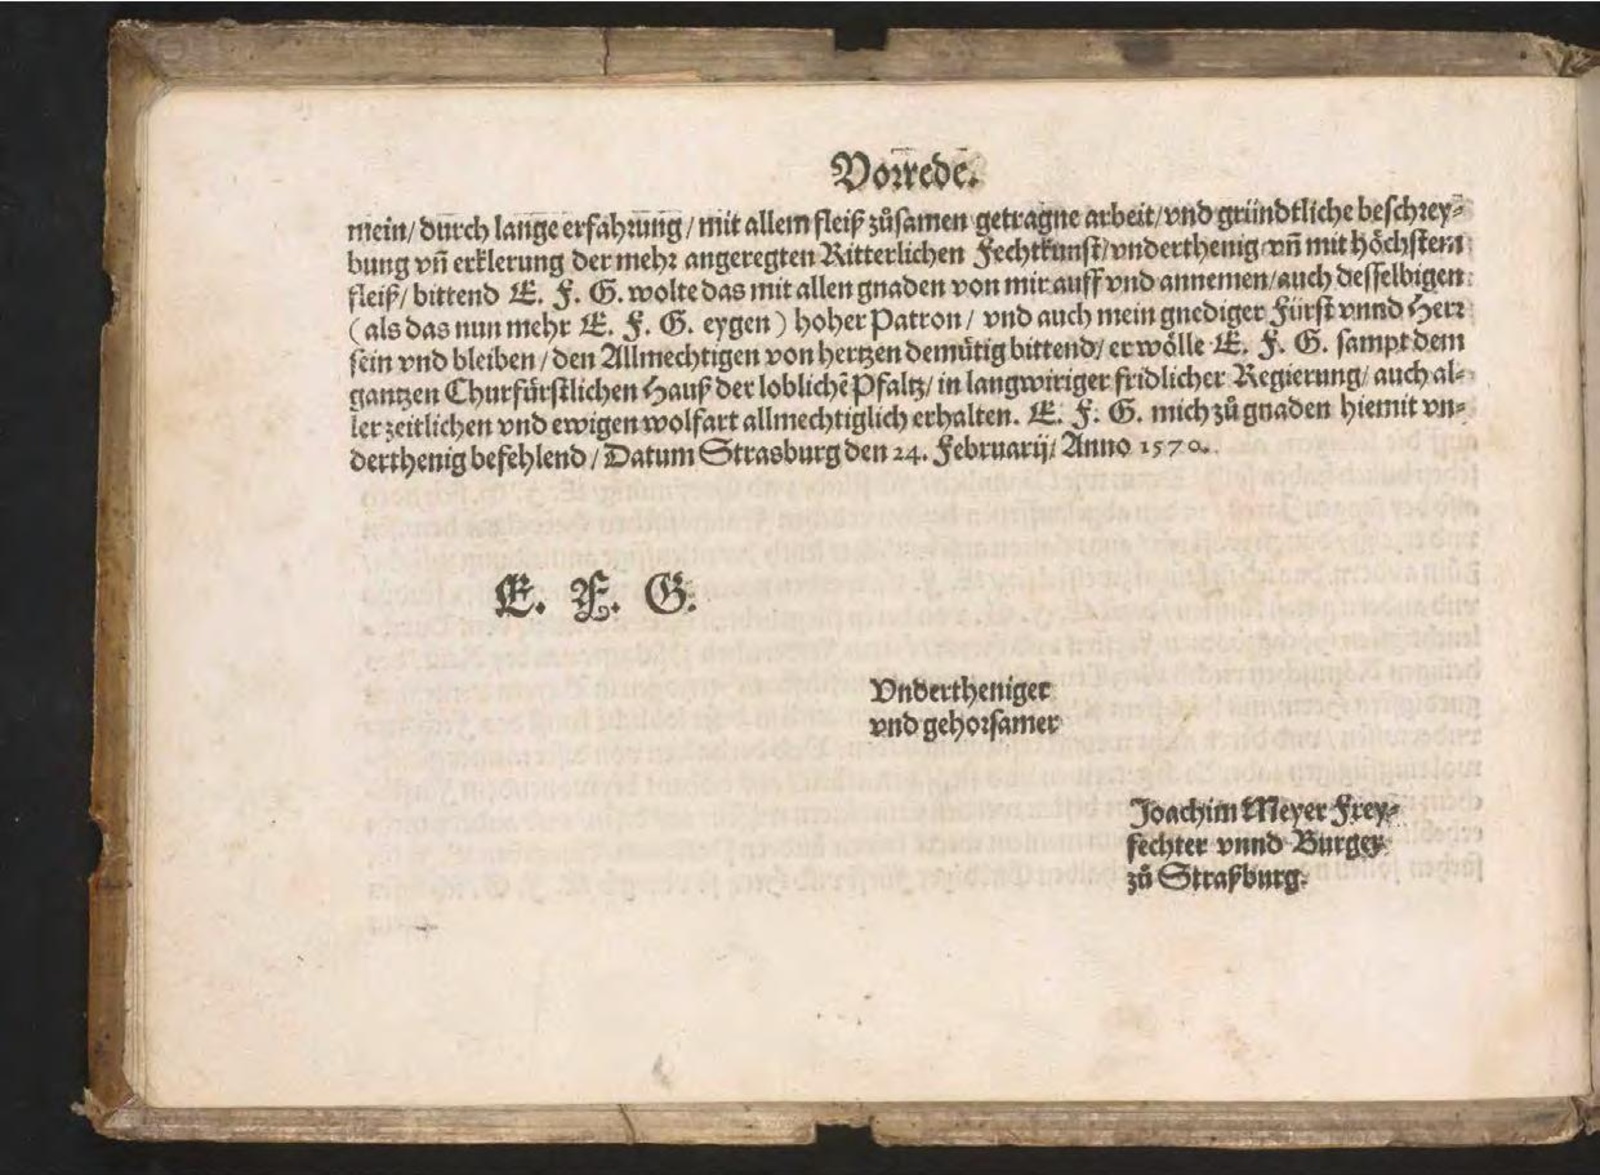 Vorrede.
mein/ durch lange erfahrung/ mit allem fleiß zůsamen getragne arbeit/ vnd gründtliche beschrey⸗
bung vñ erklerung der mehr angeregten Ritterlichen Fechtkunst/ vnderthenig vñ mit höchstem
fleiß/ bittend E. F. G. wolte das mit allen gnaden von mir auff vnd annemen/ auch desselbigen
(als das nun mehr E. F. G. eygen) hoher Patron/ vnd auch mein gnediger Fürst vnnd Herr
sein vnd bleiben/ den Allmechtigen von hertzen demütig bittend/ er wölle E. F. G. sampt dem
gantzen Churfürstlichen Hauß der loblichẽ Pfaltz/ in langwiriger fridlicher Regierung/ auch al⸗
ler zeitlichen vnd ewigen wolfart allmechtiglich erhalten. E. F. G. mich zů gnaden hiemit vn⸗
derthenig befehlend/ Datum Strasburg den 24. Februarij/ Anno 1570.
E. F. G.
Vndertheniger
vnd gehorsamer
Joachim Meyer Frey⸗
fechter vnnd Burger
zů Straßburg.